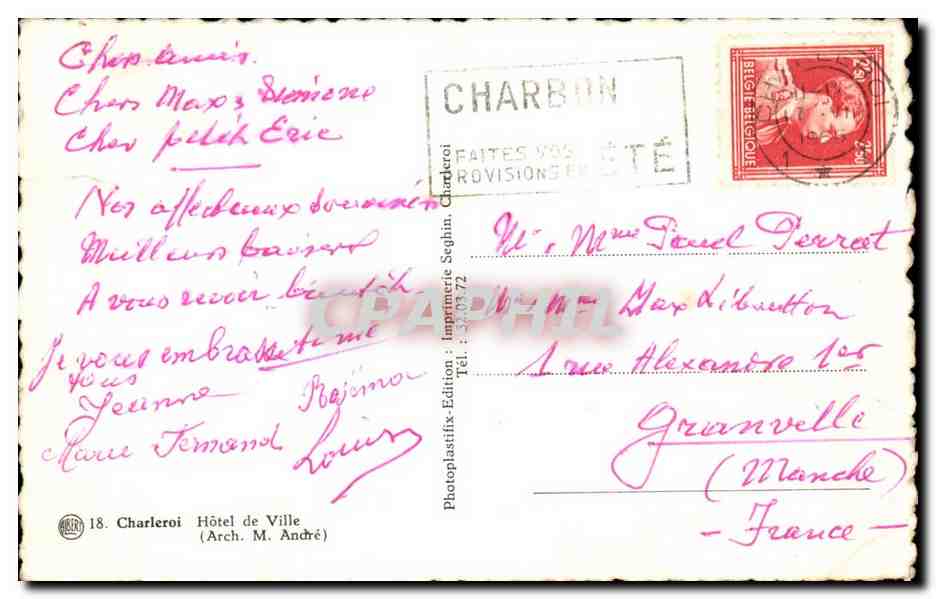 Chers amis.
Chers Max, Simone
Cher petit Eric
Nos affectueux souvenirs
Meilleurs baisers
A vous revoir bientôt.
Je vous embrasse
tous
Jeanne
Marie Fernand
Louis
18. Charleroi Hôtel de Ville
(Arch. M. André)
ALBERT
Photoplastifix-Edition : Imprimerie Seghin, Charleroi
Tél. : 32.03.72
CHARBON
FAITES VOS
PROVISIONS EN ETE
BELGIE-BELGIQUE
2.50
2.50
CHARLEROI
Mr. Mme Paul Perrat
Mr Mme Max
1 rue Alexandre 1er
Granville
(Manche)
- France -
CPAPHIL